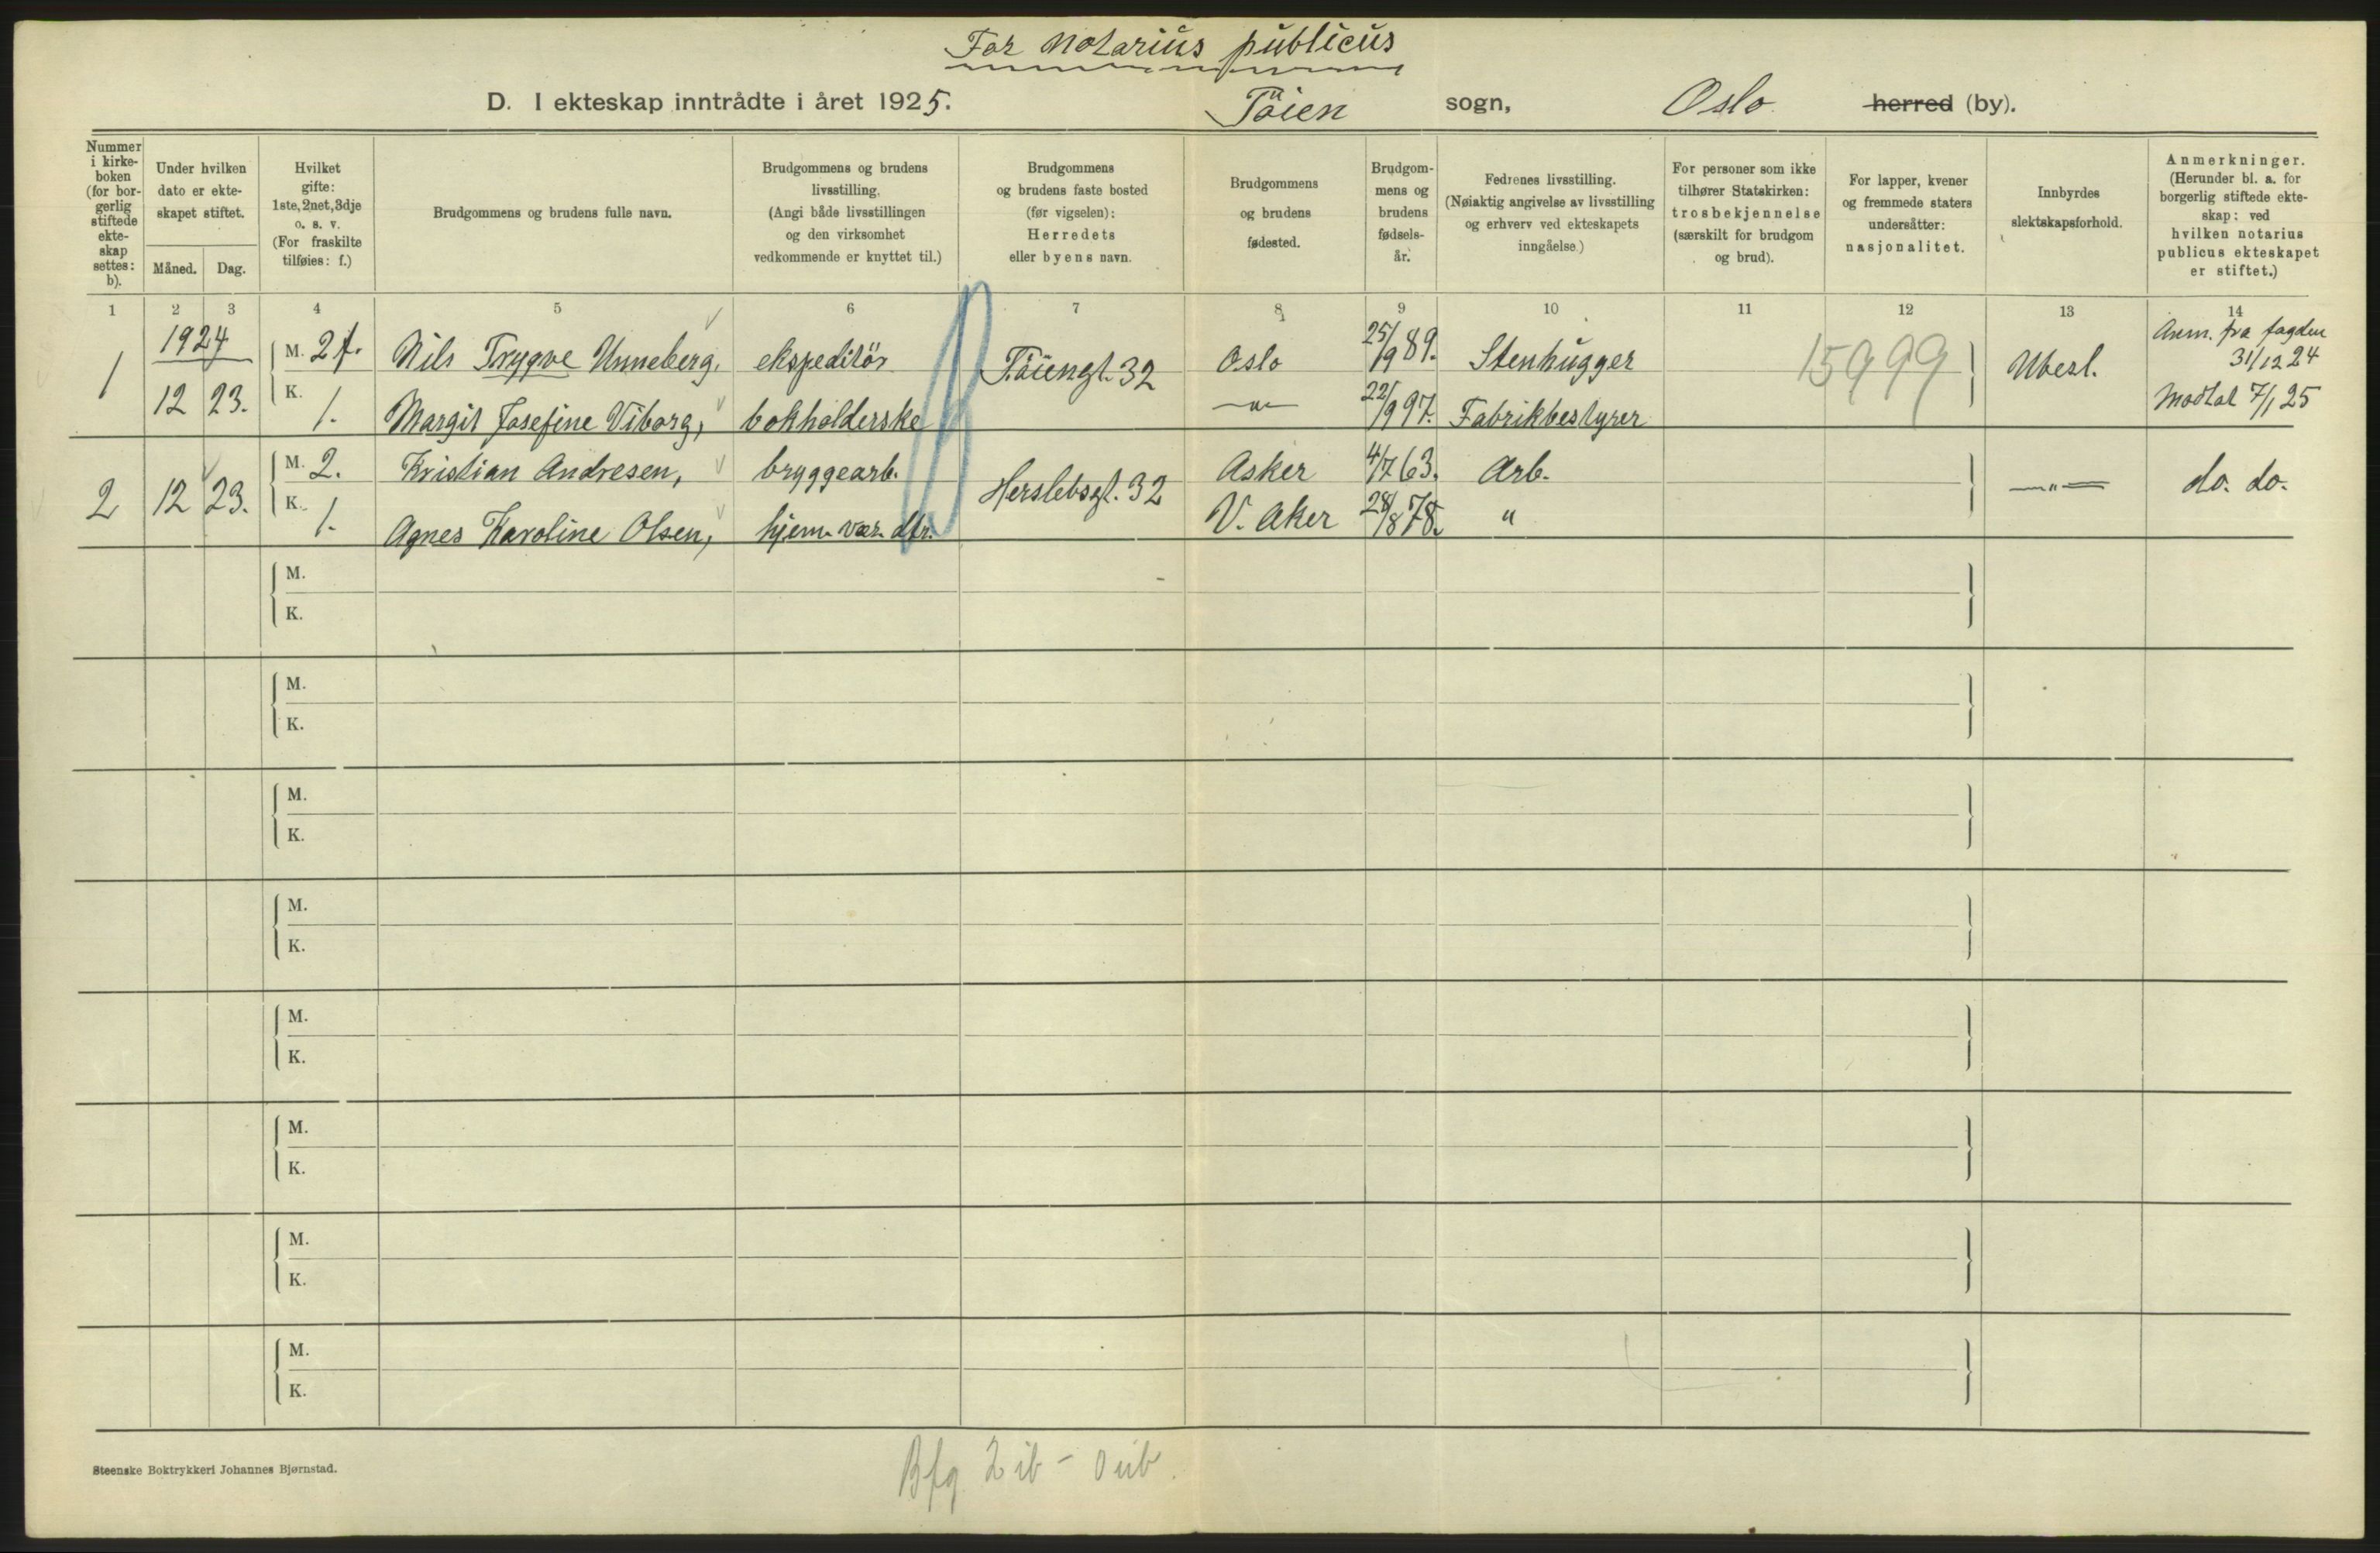 For Notarius publicus
D. I ekteskap inntrådte i året 1925. Töien sogn, Oslo herred (by).
Nummer i kirke-boken (for bor-gerlig stiftede ekte-skap settes: b).
Under hvilken dato er ekte-skapet stiftet.
Måned. Dag.
Hvilket gifte: 1ste, 2net, 3dje o. s. v. (For fraskilte tilføies: f.)
Brudgommens og brudens fulle navn.
Brudgommens og brudens livsstilling. (Angi både livsstillingen og den virksomhet vedkommende er knyttet til.)
Brudgommens og brudens faste bosted (før vigselen): Herredets eller byens navn.
Brudgommens og brudens fødested.
Brudgom-mens og brudens fødsels-år.
Fedrenes livsstilling. (Nøiaktig angivelse av livsstilling og erhverv ved ekteskapets inngåelse.)
For personer som ikke tilhører Statskirken: trosbekjennelse (særskilt for brudgom og brud).
For lapper, kvener og fremmede staters undersåtter: nasjonalitet.
Innbyrdes slektskapsforhold.
Anmerkninger. (Herunder bl. a. for borgerlig stiftede ekte-skap: ved hvilken notarius publicus ekteskapet er stiftet.)
1 2 3 4 5 6 7 8 9 10 11 12 13 14
1924
1 12 23. M. 2 f. Nils Trygve Unneberg, ekspeditör Töiengt. 32 Oslo 25/9 89. Stenhugger 15999 Ubesl. Anm. fra fogden 31/12 24
K. 1. Margit Josefine Viborg, bokholderske —"— 22/9 97. Fabrikbestyrer Modtat 7/1 25
2 12 23. M. 2. Kristian Andresen, bryggearb. Herslebsgt. 32 Asker 4/7 63. Arb. —"— do. do.
K. 1. Agnes Karoline Olsen, hjem. vær. dtr. V. Aker 28/8 78. "
M.
K.
M.
K.
M.
K.
M.
K.
M.
K.
M.
K.
M.
K.
M.
K.
Steenske Boktrykkeri Johannes Bjørnstad.
Bfg 2 ib - 0 uib.